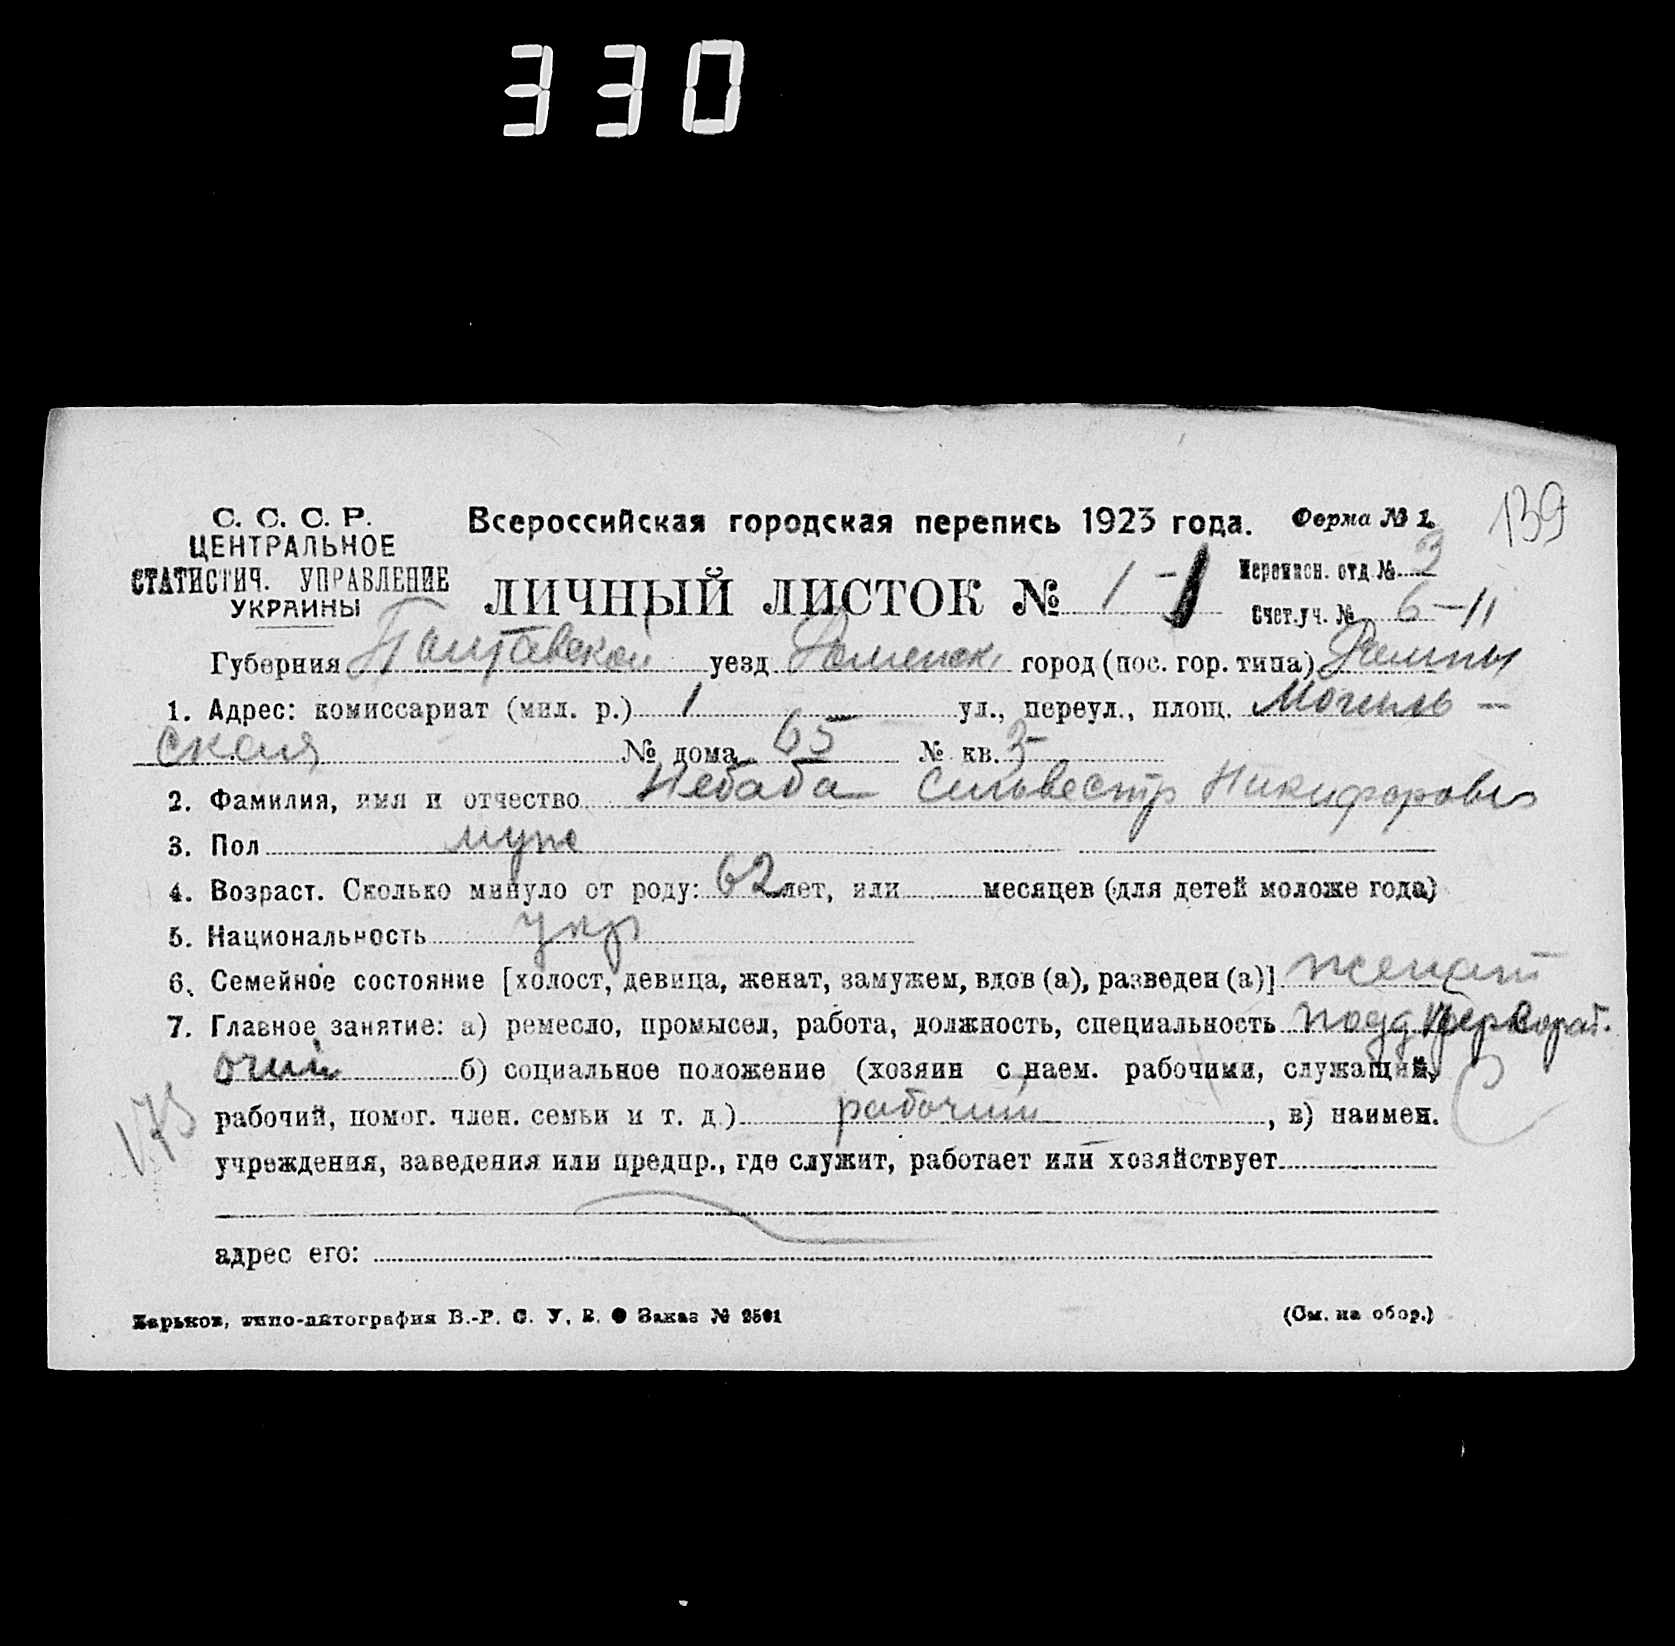 330
139
С. С. С. Р.
ЦЕНТРАЛЬНОЕ
СТАТИСТИЧ. УПРАВЛЕНИЕ
УКРАИНЫ
Всероссийская городская перепись 1923 года. Форма № 1.
ЛИЧНЫЙ ЛИСТОК № 1-1
Переписн. отд. № 3
Счет. уч. № 6-11
Губерния Полтавской уезд Роменск город (пос. гор. типа) Ромны
1. Адрес: комиссариат (мил. р.) 1 ул., переул., площ. Могиль-
ская № дома 65 № кв. 3
2. Фамилия, имя и отчество Небаба Сильвестр Никифоров
3. Пол муж
4. Возраст. Сколько минуло от роду: 62 лет, или месяцев (для детей моложе года)
5. Национальность укр
6. Семейное состояние [холост, девица, женат, замужем, вдов (а), разведен (а)] женат
7. Главное занятие: а) ремесло, промысел, работа, должность, специальность
б) социальное положение (хозяин с наем. рабочими, служащий,
рабочий, помог. член. семьи и т. д.) рабочий, в) наимен.
учреждения, заведения или предпр., где служит, работает или хозяйствует
адрес его:
Харьков, типо-литография В.-Р. С. У. В. Заказ № 2501 (См. на обор.)